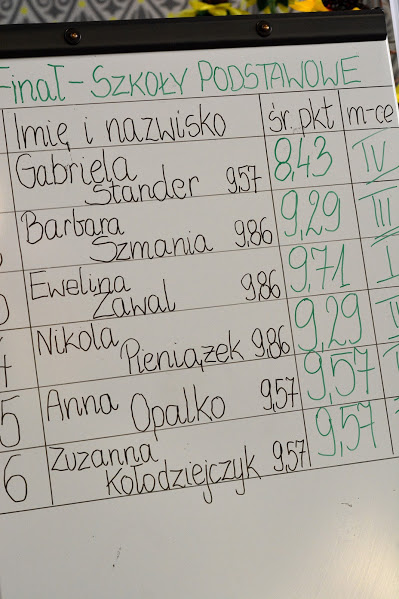 Finał - SZKOŁY PODSTAWOWE
Imię i nazwisko śr. pkt m-ce
Gabriela
Stander 9,57 8,43 IV
Barbara
Szmania 9,86 9,29 III
Ewelina
Zawal 9,86 9,71 I
Nikola
Pieniążek 9,86 9,29
5 Anna
Opalko 9,57 9,57
6 Zuzanna
Kołodziejczyk 9,57 9,57